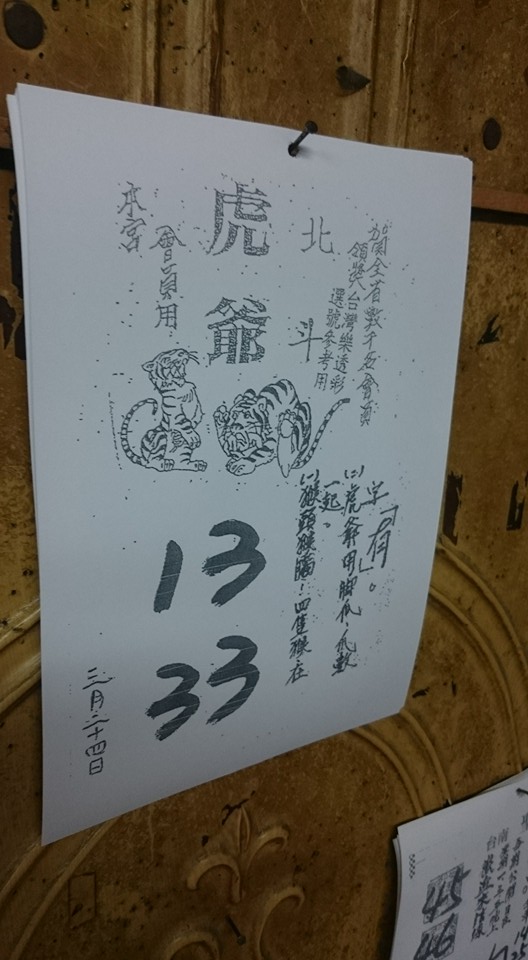 賀全省數千名會員
領獎台灣樂透彩
選號參考用
北斗
虎爺
會員用
本宮
(一)猴頭猴腦！四隻猴在
一起。
(二)虎爺用脚爪、爪數
字「有」。
13
33
三月二十四日
45
46